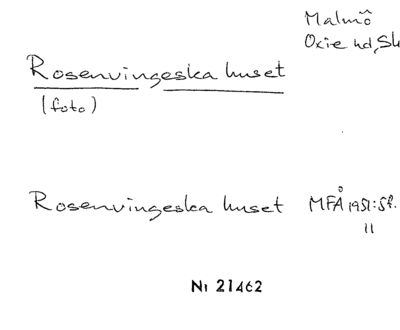 Malmö
Oxie hd, Sk
Rosenvingeska huset
(foto)
Rosenvingeska huset MFÅ 1951: Sf.
11
Nr 21462